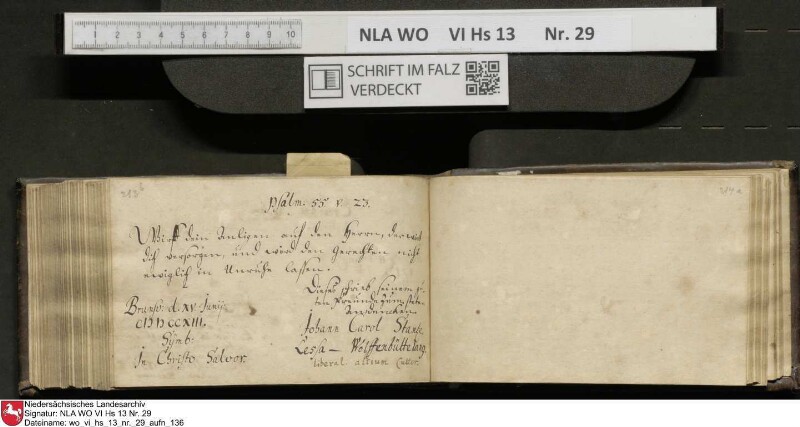 1 2 3 4 5 6 7 8 9 10
NLA WO VI Hs 13 Nr. 29
SCHRIFT IM FALZ
VERDECKT
213b
214a
Psalm. 55 v. 23.
Wirff dein Anligen auf den Herrn, der wird
dich versorgen, und wird den Gerechten nicht
ewiglich in Unruhe lassen.
Dieses schrieb seinem
Freunde zum
Johann Carol
Lessa – Wolffenbüttelang.
liberal. artium Cultor.
Brunsv. d. XV. Junij
CIƆIƆCCXIII.
Symb.
In Christo Salvor.
Niedersächsisches Landesarchiv
Signatur: NLA WO VI Hs 13 Nr. 29
Dateiname: wo_vi_hs_13_nr._29_aufn_136